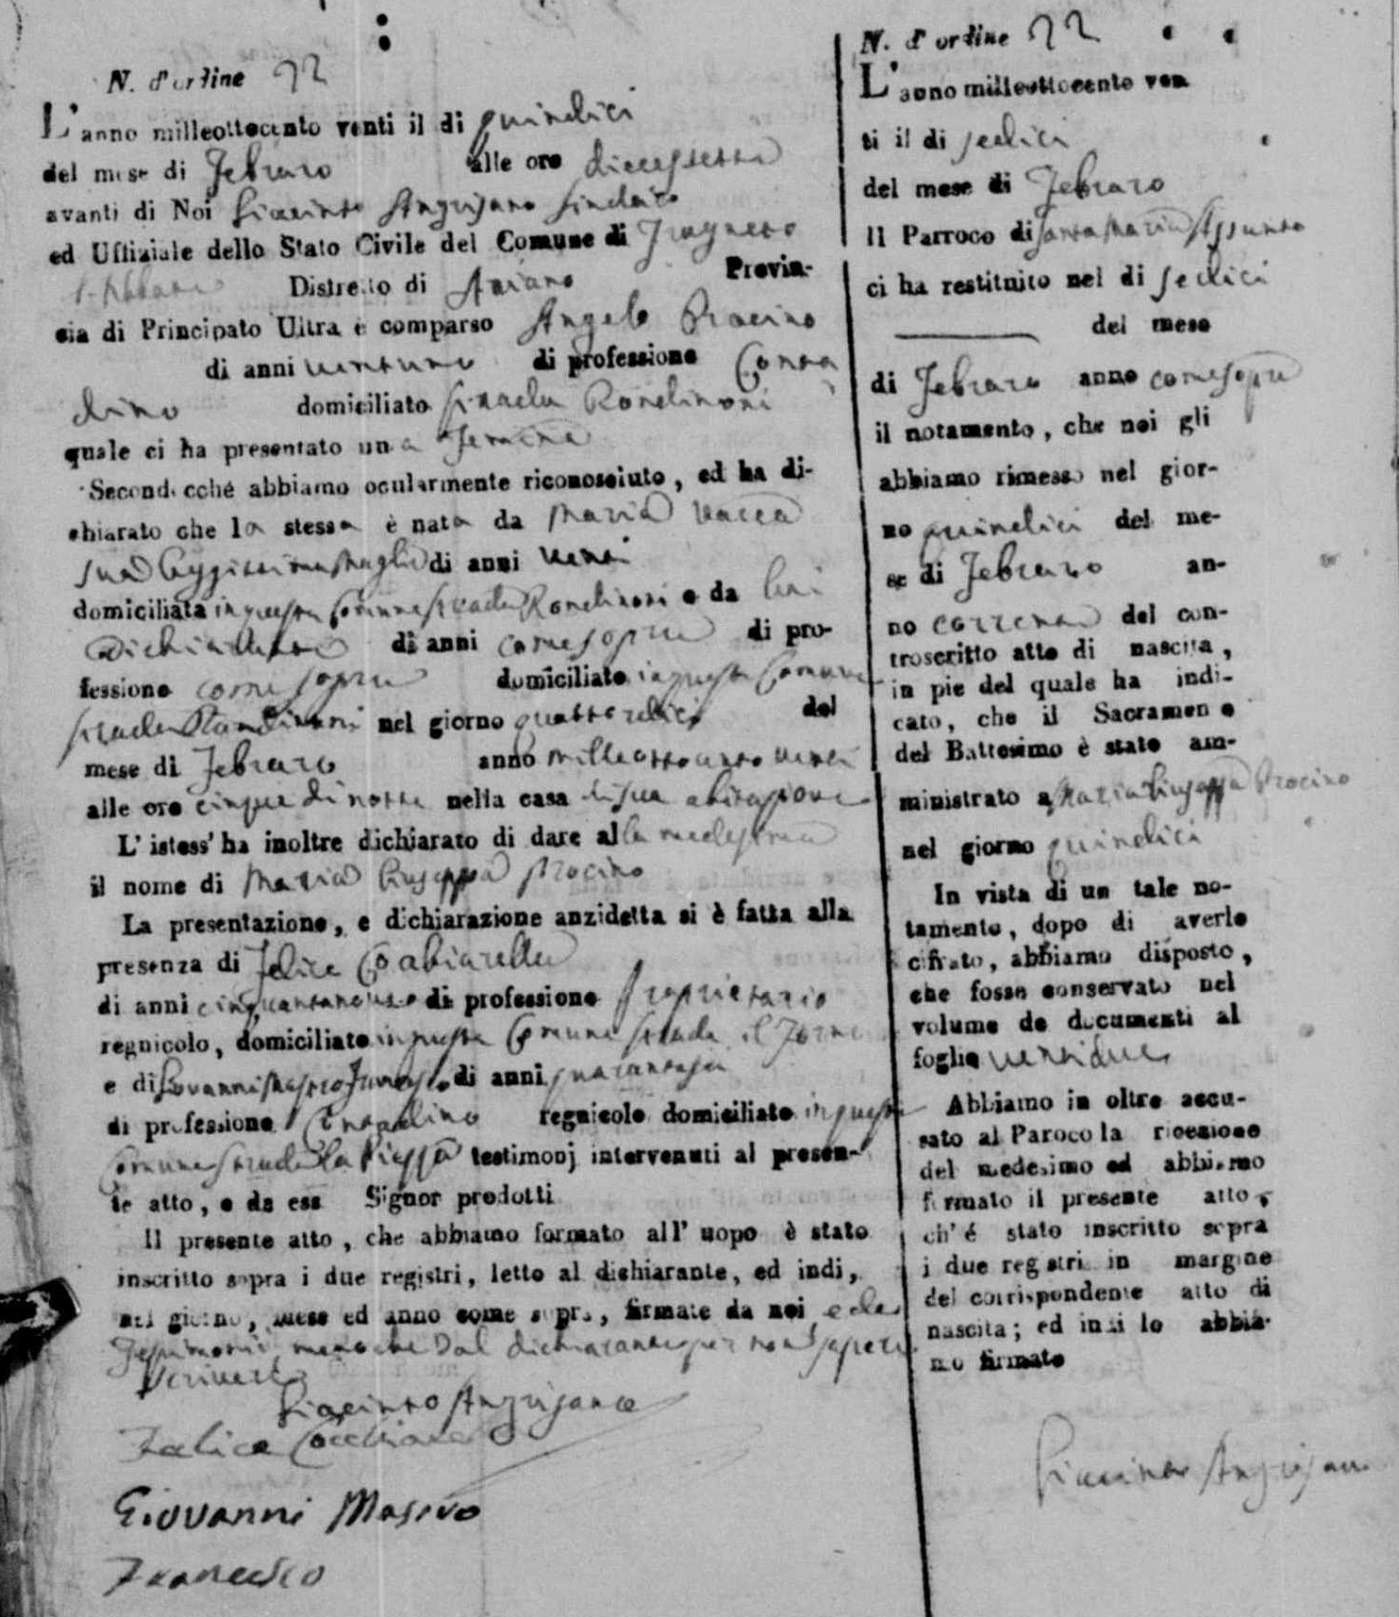 N. d'ordine 22
L'anno milleottocento venti il di quindici
del mese di Febraro alle ore diecesette
avanti di Noi Giacinto Angrisano Sindaco
ed Uffiziale dello Stato Civile del Comune di Fragneto
l'Abbate Distretto di Ariano Provin-
cia di Principato Ultra è comparso Angelo Procino
di anni ventuno di professione Conta
dino domiciliato strada Rondinoni
quale ci ha presentato una Femina
Secondocché abbiamo ocularmente riconosciuto, ed ha di-
chiarato che la stessa è nata da Maria Vacca
sua leggittima moglie di anni venti
domiciliata in questa Comune strada Rondinoni e da lui
Dichiarante di anni come sopra di pro-
fessione come sopra domiciliato in questa Comune
strada Rondinoni nel giorno quattordici del
mese di Febraro anno milleottocento venti
alle ore cinque di notte nella casa di sua abitazione
L'istess' ha inoltre dichiarato di dare alla medesima
il nome di Maria Giuseppa Procino
La presentazione, e dichiarazione anzidetta si è fatta alla
presenza di Felice Cocchiarella
di anni di professione Proprietario
regnicolo, domiciliato in questa Comune strada il Forno
e di Giovanni Mastrofrancesco di anni quarantasei
di professione Contadino regnicolo domiciliato in questa
Comune strada la Piazza testimonj intervenuti al presen-
te atto, e da ess Signor prodotti
Il presente atto, che abbiamo formato all' uopo è stato
inscritto sopra i due registri, letto al dichiarante, ed indi,
nel giorno, mese ed anno come sopra, firmato da noi, e da
Testimonii, meno che dal dichiarante per non sapere
scrivere
Giacinto Angrisano
Felice Cocchiarella
Giovanni Mastro
Francesco
N. d'ordine 22
L'anno milleottocento ven
ti il di sedici
del mese di Febraro
Il Parroco di Santa Maria Assunta
ci ha restituito nel di sedici
del mese
di Febraro anno come sopra
il notamento, che noi gli
abbiamo rimesso nel gior-
no quindici del me-
se di Febraro an-
no corrente del con-
troscritto atto di nascita,
in pie del quale ha indi-
cato, che il Sacramento
del Battesimo è stato am-
ministrato a Maria Giuseppa Procino
nel giorno quindici
In vista di un tale no-
tamento, dopo di averlo
cifrato, abbiamo disposto,
che fosse conservato nel
volume de documenti al
foglio ventidue
Abbiamo in oltre accu-
sato al Paroco la ricezione
del medesimo ed abbiamo
formato il presente atto,
ch' é stato inscritto sopra
i due registri in margine
del corrispondente atto di
nascita; ed indi lo abbia-
mo firmato
Giacinto Angrisano